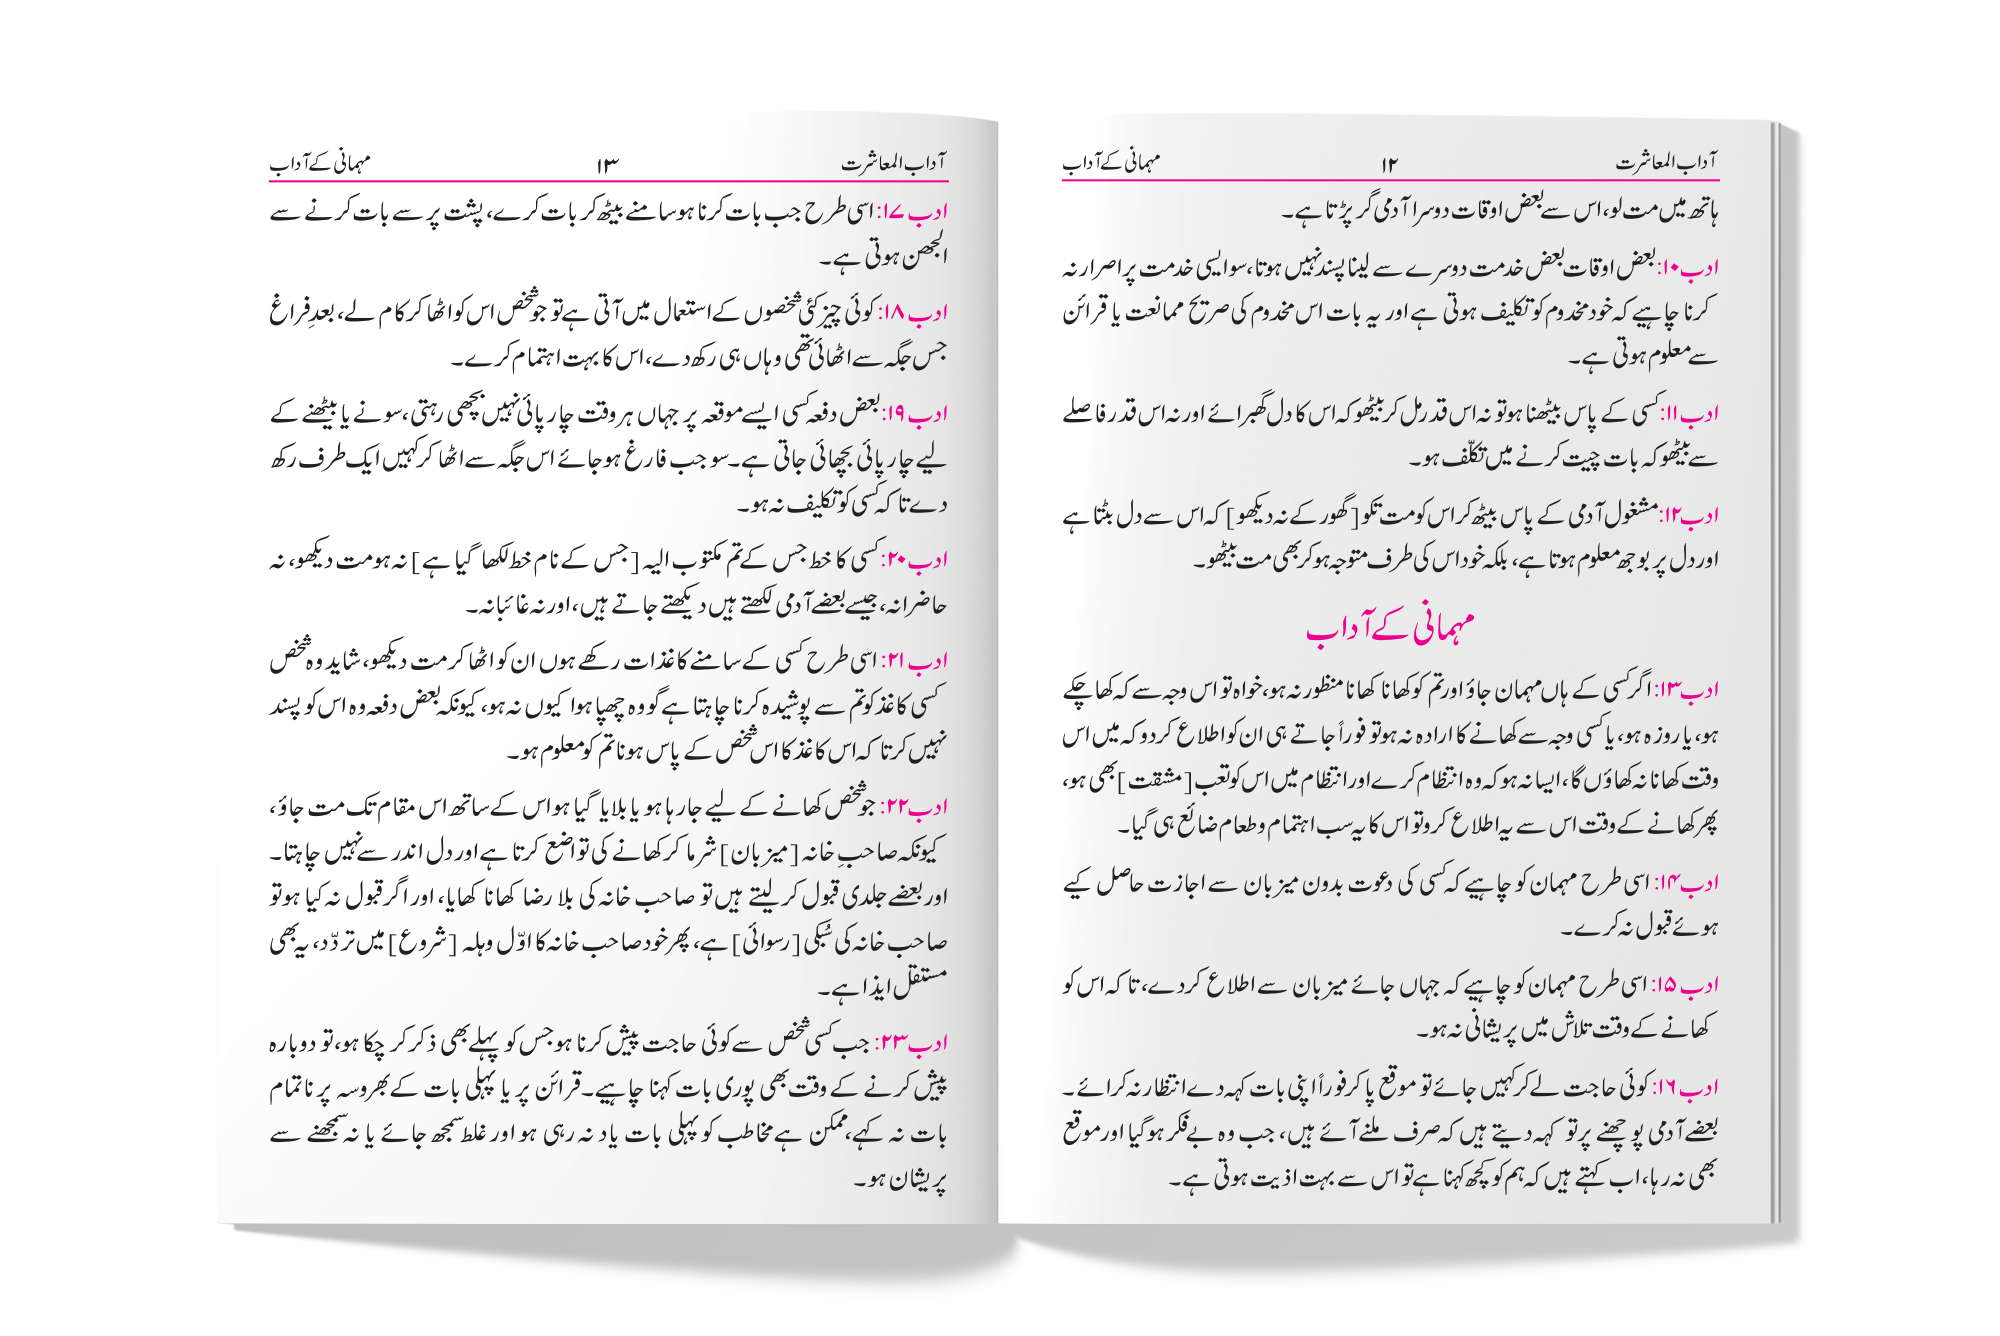 آداب المعاشرت ۱۲ مہمانی کے آداب
ہاتھ میں مت لو، اس سے بعض اوقات دوسرا آدمی گر پڑتا ہے۔
ادب۱۰: بعض اوقات بعض خدمت دوسرے سے لینا پسند نہیں ہوتا، سو ایسی خدمت پر اصرار نہ
کرنا چاہیے کہ خود مخدوم کو تکلیف ہوتی ہے اور یہ بات اس مخدوم کی صریح ممانعت یا قرائن
سے معلوم ہوتی ہے۔
ادب۱۱: کسی کے پاس بیٹھنا ہو تو نہ اس قدر مل کر بیٹھو کہ اس کا دل گھبرائے اور نہ اس قدر فاصلے
سے بیٹھو کہ بات چیت کرنے میں تکلّف ہو۔
ادب۱۲: مشغول آدمی کے پاس بیٹھ کر اس کو مت تکو [گھور کے نہ دیکھو] کہ اس سے دل بٹتا ہے
اور دل پر بوجھ معلوم ہوتا ہے، بلکہ خود اس کی طرف متوجہ ہو کر بھی مت بیٹھو۔
مہمانی کے آداب
ادب۱۳: اگر کسی کے ہاں مہمان جاؤ اور تم کو کھانا کھانا منظور نہ ہو، خواہ تو اس وجہ سے کہ کھا چکے
ہو، یا روزہ ہو، یا کسی وجہ سے کھانے کا ارادہ نہ ہو تو فوراً جاتے ہی ان کو اطلاع کردو کہ میں اس
وقت کھانا نہ کھاؤں گا، ایسا نہ ہو کہ وہ انتظام کرے اور انتظام میں اس کو تعب [مشقت] بھی ہو،
پھر کھانے کے وقت اس سے یہ اطلاع کرو تو اس کا یہ سب اہتمام و طعام ضائع ہی گیا۔
ادب۱۴: اسی طرح مہمان کو چاہیے کہ کسی کی دعوت بدون میزبان سے اجازت حاصل کیے
ہوئے قبول نہ کرے۔
ادب ۱۵: اسی طرح مہمان کو چاہیے کہ جہاں جائے میزبان سے اطلاع کردے، تا کہ اس کو
کھانے کے وقت تلاش میں پریشانی نہ ہو۔
ادب ۱۶: کوئی حاجت لے کر کہیں جائے تو موقع پا کر فوراً اپنی بات کہہ دے انتظار نہ کرائے۔
بعضے آدمی پوچھنے پر تو کہہ دیتے ہیں کہ صرف ملنے آئے ہیں، جب وہ بے فکر ہو گیا اور موقع
بھی نہ رہا، اب کہتے ہیں کہ ہم کو کچھ کہنا ہے تو اس سے بہت اذیت ہوتی ہے۔
آداب المعاشرت ۱۳ مہمانی کے آداب
ادب ۱۷: اسی طرح جب بات کرنا ہو سامنے بیٹھ کر بات کرے، پشت پر سے بات کرنے سے
الجھن ہوتی ہے۔
ادب ۱۸: کوئی چیز کئی شخصوں کے استعمال میں آتی ہے تو جو شخص اس کو اٹھا کر کام لے، بعدِ فراغ
جس جگہ سے اٹھائی تھی وہاں ہی رکھ دے، اس کا بہت اہتمام کرے۔
ادب ۱۹: بعض دفعہ کسی ایسے موقعہ پر جہاں ہر وقت چارپائی نہیں بچھی رہتی، سونے یا بیٹھنے کے
لیے چارپائی بچھائی جاتی ہے۔ سو جب فارغ ہو جائے اس جگہ سے اٹھا کر کہیں ایک طرف رکھ
دے تا کہ کسی کو تکلیف نہ ہو۔
ادب ۲۰: کسی کا خط جس کے تم مکتوب الیہ [جس کے نام خط لکھا گیا ہے] نہ ہو مت دیکھو، نہ
حاضرانہ، جیسے بعضے آدمی لکھتے ہیں دیکھتے جاتے ہیں، اور نہ غائبانہ۔
ادب ۲۱: اسی طرح کسی کے سامنے کاغذات رکھے ہوں ان کو اٹھا کر مت دیکھو، شاید وہ شخص
کسی کاغذ کو تم سے پوشیدہ کرنا چاہتا ہے گو وہ چھپا ہوا کیوں نہ ہو، کیونکہ بعض دفعہ وہ اس کو پسند
نہیں کرتا کہ اس کاغذ کا اس شخص کے پاس ہونا تم کو معلوم ہو۔
ادب ۲۲: جو شخص کھانے کے لیے جا رہا ہو یا بلایا گیا ہو اس کے ساتھ اس مقام تک مت جاؤ،
کیونکہ صاحبِ خانہ [میزبان] شرما کر کھانے کی تواضع کرتا ہے اور دل اندر سے نہیں چاہتا۔
اور بعضے جلدی قبول کر لیتے ہیں تو صاحب خانہ کی بلا رضا کھانا کھایا، اور اگر قبول نہ کیا ہو تو
صاحب خانہ کی سُبکی [رسوائی] ہے، پھر خود صاحب خانہ کا اوّل وہلہ [شروع] میں تردّد، یہ بھی
مستقل ایذا ہے۔
ادب ۲۳: جب کسی شخص سے کوئی حاجت پیش کرنا ہو جس کو پہلے بھی ذکر کر چکا ہو، تو دوبارہ
پیش کرنے کے وقت بھی پوری بات کہنا چاہیے۔ قرائن پر یا پہلی بات کے بھروسہ پر ناتمام
بات نہ کہے، ممکن ہے مخاطب کو پہلی بات یاد نہ رہی ہو اور غلط سمجھ جائے یا نہ سمجھنے سے
پریشان ہو۔